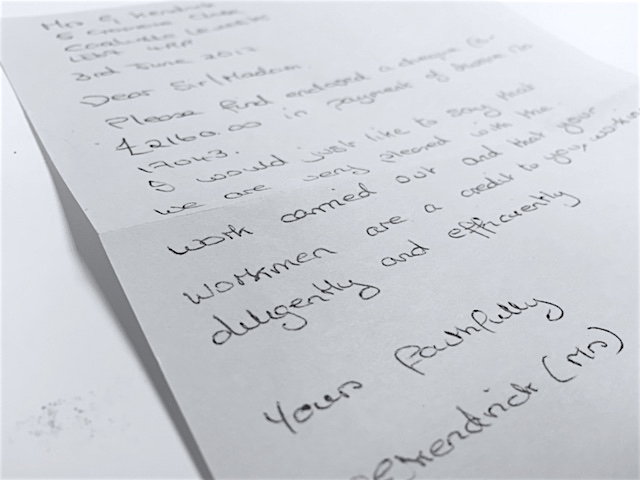 Mrs G Kendrick
5
Coalville
LE67 4RP
3rd June 2017
Dear Sir/Madam
Please find enclosed a cheque for
£2160.00 in payment of Invoice No
17043.
I would just like to say that
we are very pleased with the
work carried out and that your
workmen are a credit to you, working
diligently and efficiently
Yours faithfully
GKendrick (Mrs)